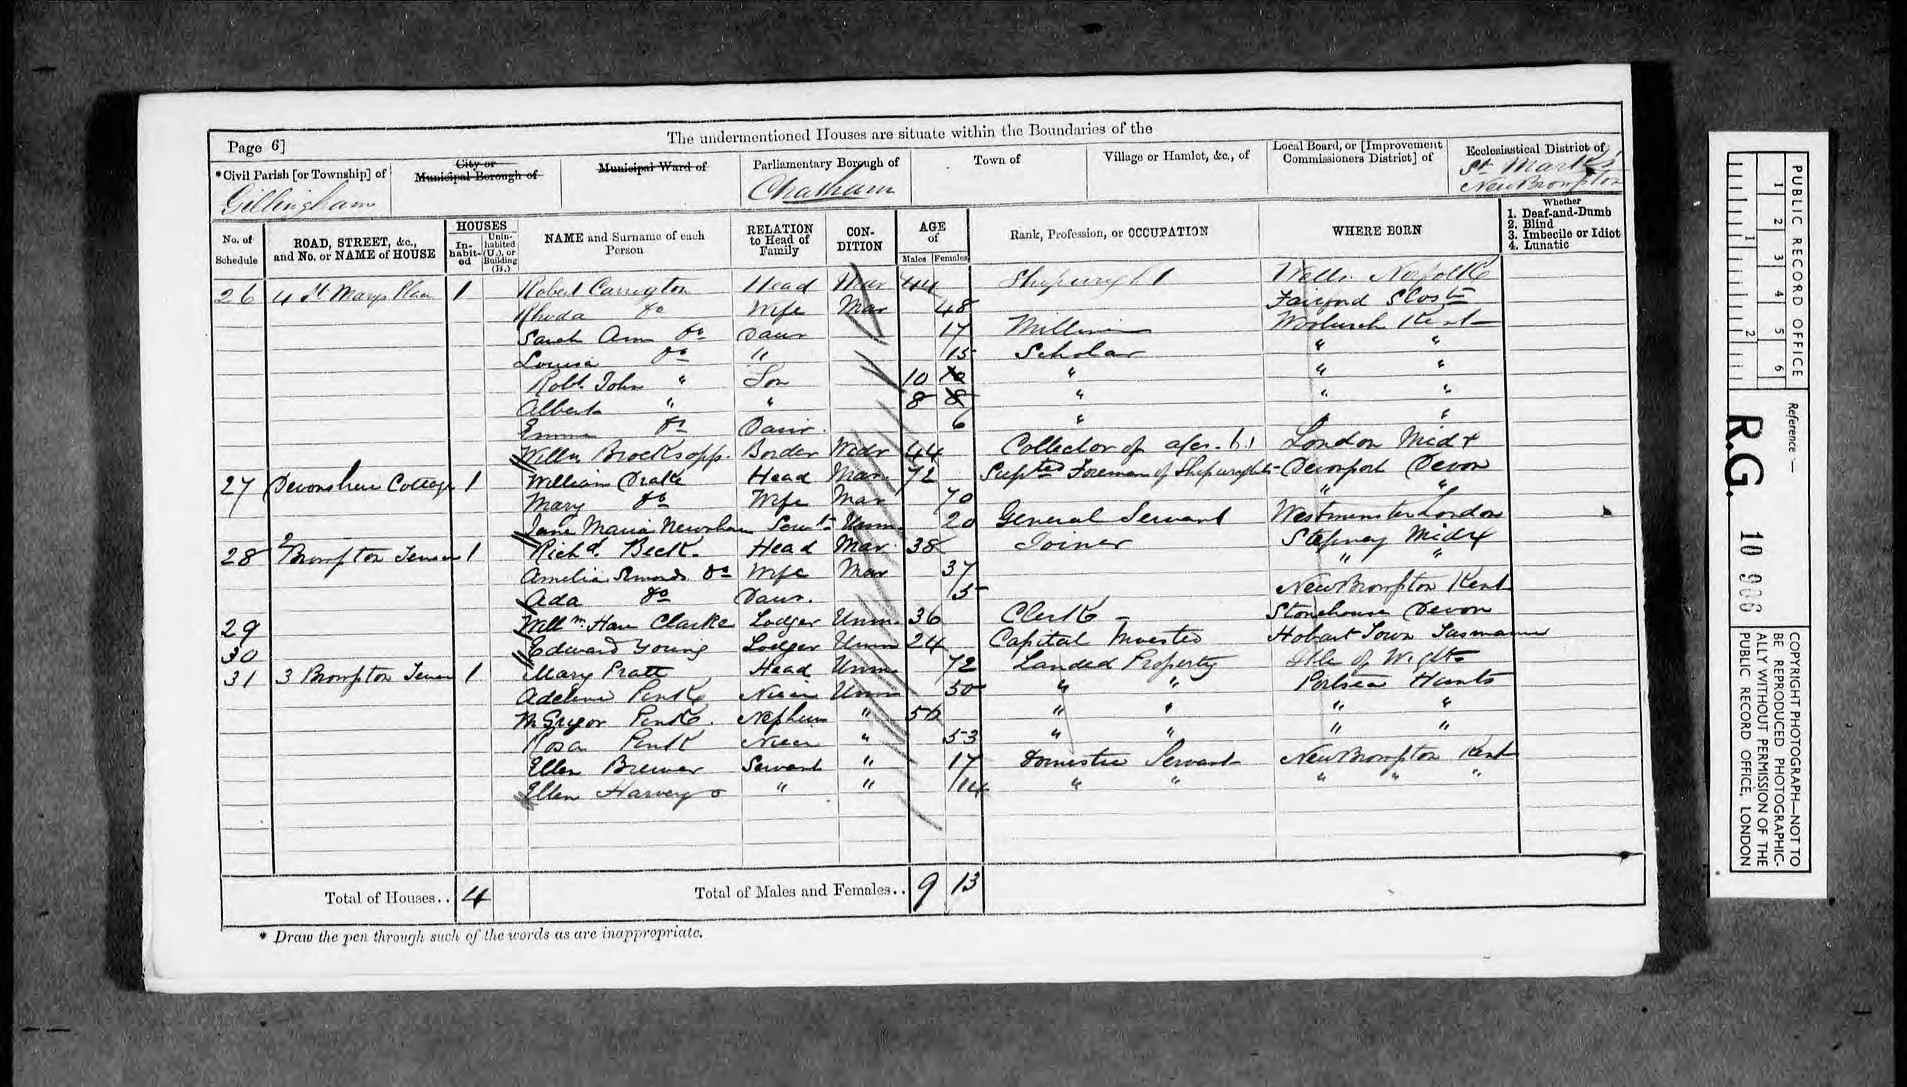 The undermentioned Houses are situate within the Boundaries of the
Page 6]
*Civil Parish [or Township] of
City or Municipal Borough of
Municipal Ward of
Parliamentary Borough of
Town of
Village or Hamlet, &c., of
Local Board, or [Improvement Commissioners District] of
Ecclesiastical District of
Gillingham
Chatham
St Mark's
New Brompton
No. of Schedule
ROAD, STREET, &c., and No. or NAME of HOUSE
HOUSES
In-habit-ed
Unin-habited (U.), or Building (B.)
NAME and Surname of each Person
RELATION to Head of Family
CON-DITION
AGE of
Males
Females
Rank, Profession, or OCCUPATION
WHERE BORN
Whether
1. Deaf-and-Dumb
2. Blind
3. Imbecile or Idiot
4. Lunatic
26 4 St Marys Place 1 Robert Carrington Head Mar 44 Shipwright Wells Norfolk
Rhoda do Wife Mar 48 Fairford
Sarah Ann do Daur 17 Woolwich Kent
Louisa do " 15 Scholar " "
Robt. John " Son 10 10 " " "
Albert " " 8 8 " " "
Emma do Daur. 6 " " "
Brocksopp. Border Widr 44 Collector of London Midx
27 Devonshire Cottage 1 William Drake Head Mar 72 Foreman of Shipwrights Devonport Devon
Mary do Wife Mar 70 " "
Jane Maria Newsham Servt Unm. 20 General Servant Westminster London
28 2 Brompton 1 Richd. Beck. Head Mar 38 Joiner Stepney Midx
Amelia do Wife Mar 37 " "
Ada do Daur. 15 New Brompton Kent
29 Willm. Clarke Lodger Unm. 36 Clerk Stonehouse Devon
30 Edward Young Lodger Unm 24 Capital Hobart Town
31 3 Brompton 1 Mary Pratt Head Unm 72 Landed Property Isle of Wight
Adeline Penk Niece Unm 50 " " Portsea Hants
McGregor Penk. Nephew " " " " "
Rosa Penk Niece " 53 " " " "
Ellen Brewer Servant " 17 Domestic Servant New Brompton Kent
Ellen Harvey " " 14 " " " " "
Total of Houses.. 4
Total of Males and Females.. 9 13
* Draw the pen through such of the words as are inappropriate.
PUBLIC RECORD OFFICE
1 2 3 4 5 6
1 2
Reference :—
R.G. 10
COPYRIGHT PHOTOGRAPH—NOT TO
BE REPRODUCED PHOTOGRAPHIC-
ALLY WITHOUT PERMISSION OF THE
PUBLIC RECORD OFFICE, LONDON